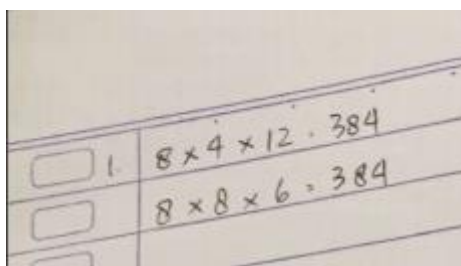 1. 8 × 4 × 12 = 384
8 × 8 × 6 = 384